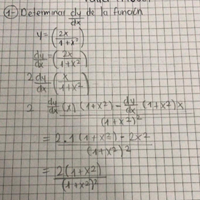 1- Determinar dy/dx de la función
y = (2x/1+x²)
dy/dx = (2x/1+x²)
2 dy/dx (x/1+x²)
2 dy/dx (x) (1+x²) - dy/dx (1+x²) x / (1+x²)²
= 2.1 (1+x²) - 2x² / (1+x²)²
= 2(1+x²) / (1+x²)²